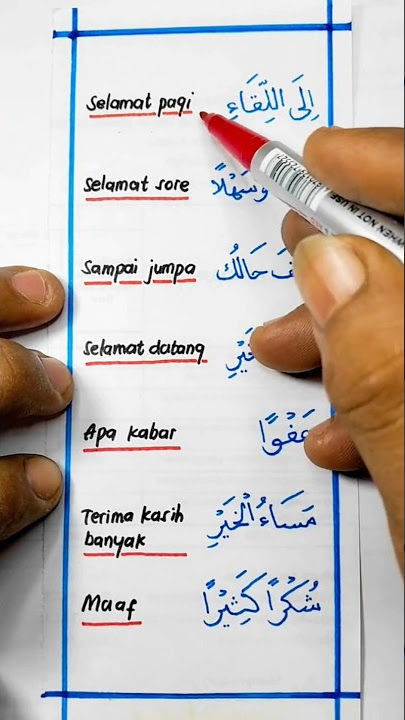 Selamat pagi إِلَى اللِّقَاءِ
Selamat sore وَسَهْلًا
Sampai jumpa حَالُك
Selamat datang
Apa kabar عَفْوًا
Terima kasih
banyak مَسَاءُ الْخَيْرِ
Maaf شُكْرًا كَثِيْرًا